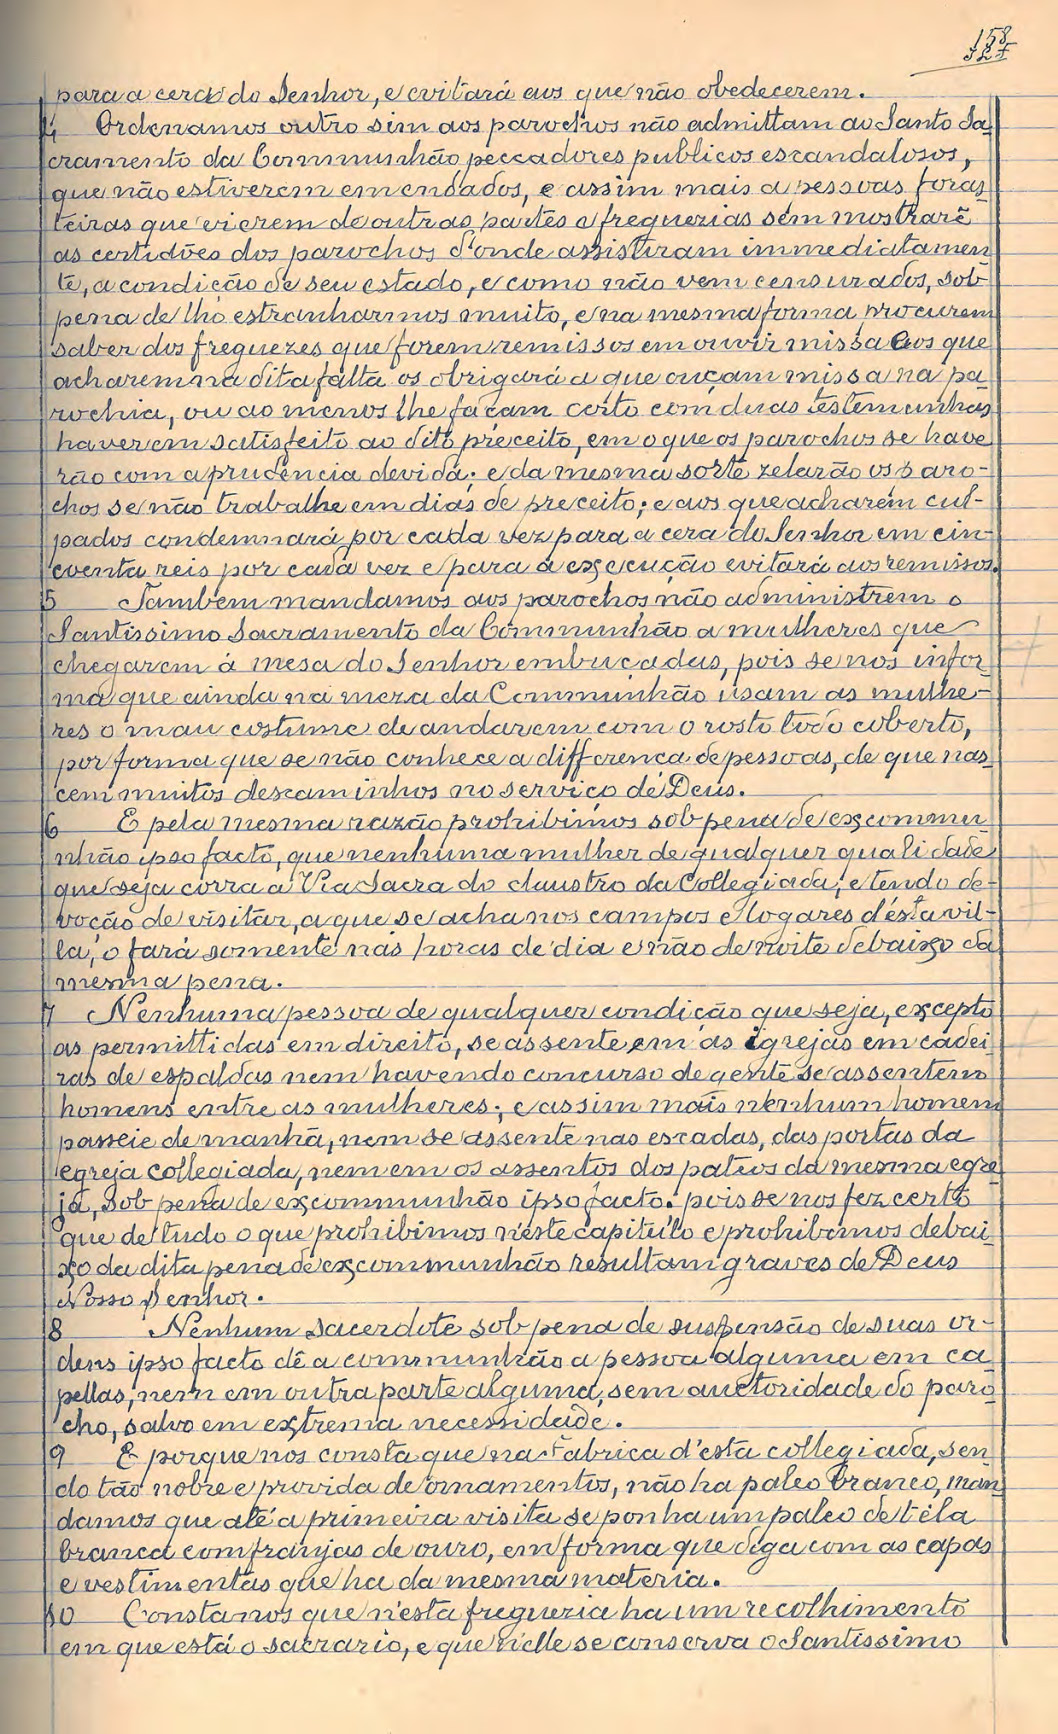 158
327
para a cera do Senhor, e evitará aos que não obedecerem.
4 Ordenamos outro sim aos parochos não admittam ao Santo Sa-
cramento da Communhão peccadores publicos escandalosos,
que não estiverem emendados, e assim mais a pessoas foras-
teiras que vierem de outras partes e freguezias sem mostrarẽ
as certidões dos parochos d'onde assistiram immediatamen
te, a condição de seu estado, e como não vem censurados, sob
pena de lho estranharmos muito, e na mesma forma procurem
saber dos freguezes que forem remissos em ouvir missa e aos que
acharem na dita falta os obrigará a que ouçam missa na pa
rochia, ou ao menos lhe façam certo com duas testemunhas
haverem satisfeito ao dito preceito, em o que os parochos se have
rão com a prudencia devida; e da mesma sorte zelarão os paro-
chos se não trabalhe em dias de preceito; e aos que acharem cul-
pados condemnará por cada vez para a cera do Senhor em cin-
coenta reis por cada vez e para a execução evitará aos remissos.
5 Tambem mandamos aos parochos não administrem o
Santissimo Sacramento da Communhão a mulheres que
chegarem á mesa do Senhor embuçadas, pois se nos infor
ma que ainda na meza da Communhão usam as mulhe-
res o mau costume de andarem com o rosto todo coberto,
por forma que se não conhece a differença de pessoas, de que nas-
cem muitos descaminhos no serviço de Deus.
6 E pela mesma razão prohibimos sob pena de excommu-
nhão ipso facto, que nenhuma mulher de qualquer qualidade
que seja corra a Via Sacra do claustro da Collegiada; e tendo de-
voção de visitar, a que se acha nos campos e logares d'ésta vil-
la, o fará somente nas horas de dia e não de noite debaixo da
mesma pena.
7 Nenhuma pessoa de qualquer condição que seja, excepto
as permittidas em direito, se assente em as igrejas em cadei-
ras de espaldas nem havendo concurso de gente se assentem
homens entre as mulheres; e assim mais nenhum homem
passeie de manhã, nem se assente nas escadas, das portas da
egreja collegiada, nem em os assentos dos pateos da mesma egre
ja, sob pena de excommunhão ipso facto: pois se nos fez certo
que de tudo o que prohibimos n'este capitulo e prohibimos debai
xo da dita pena de excommunhão resultam graves de Deus
Nosso Senhor.
8 Nenhum sacerdote sob pena de suspensão de suas or-
dens ipso facto dê a communhão a pessoa alguma em ca
pellas, nem em outra parte alguma, sem auctoridade do paro
cho, salvo em extrema necessidade.
9 E porque nos consta que na Fabrica d'esta collegiada, sen
do tão nobre e provida de ornamentos, não ha paleo branco, man
damos que até a primeira visita se ponha um paleo de téla
branca com franjas de ouro, em forma que diga com as capas
e vestimentas que ha da mesma materia.
10 Constanos que n'esta freguezia ha um recolhimento
em que está o sacrario, e que n'elle se conserva o Santissimo